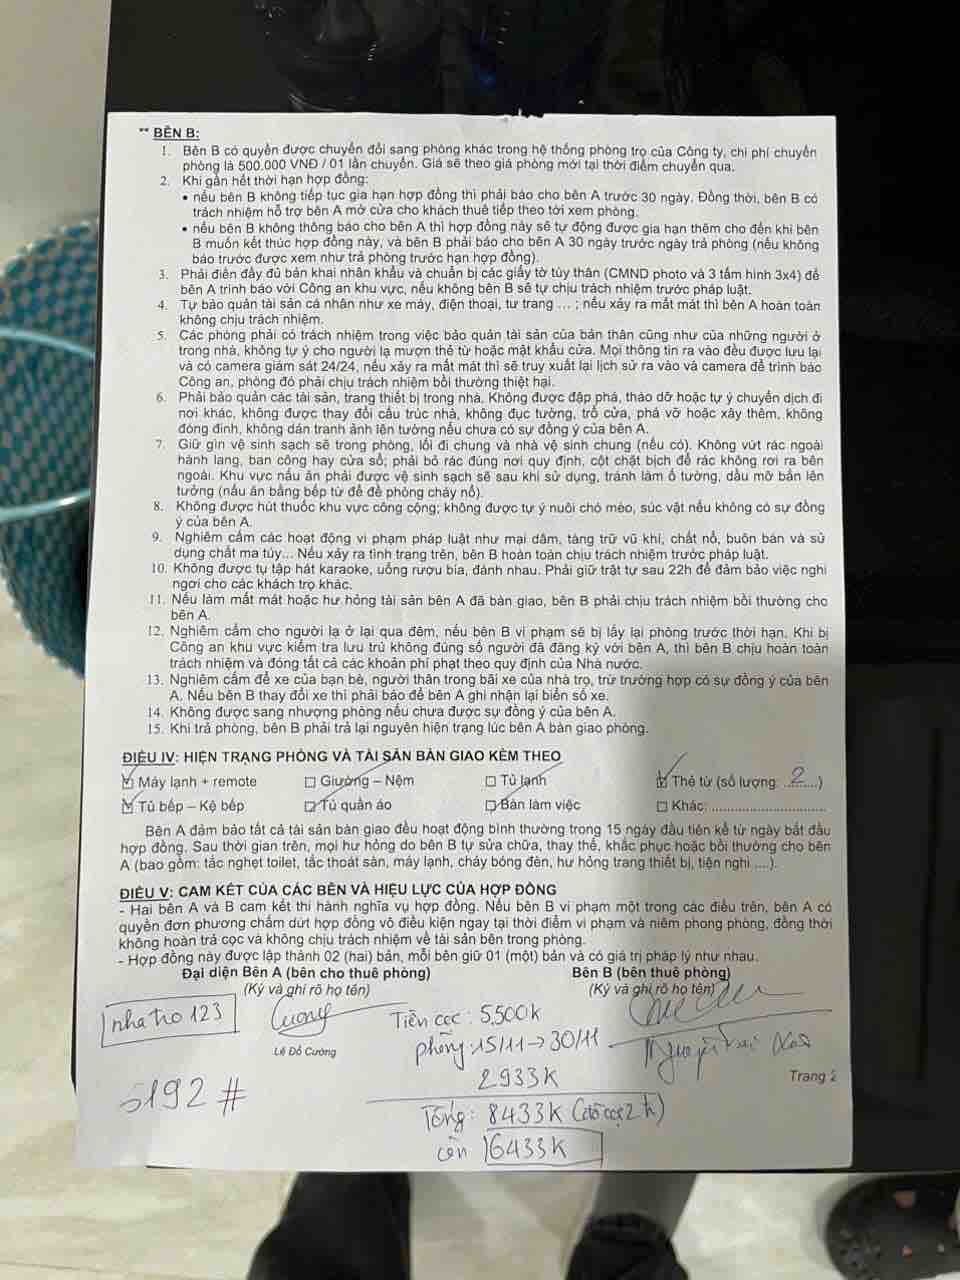 ** BÊN B:
1. Bên B có quyền được chuyển đổi sang phòng khác trong hệ thống phòng trọ của Công ty, chi phí chuyển
phòng là 500.000 VNĐ / 01 lần chuyển. Giá sẽ theo giá phòng mới tại thời điểm chuyển qua.
2. Khi gần hết thời hạn hợp đồng:
• nếu bên B không tiếp tục gia hạn hợp đồng thì phải báo cho bên A trước 30 ngày. Đồng thời, bên B có
trách nhiệm hỗ trợ bên A mở cửa cho khách thuê tiếp theo tới xem phòng.
• nếu bên B không thông báo cho bên A thì hợp đồng này sẽ tự động được gia hạn thêm cho đến khi bên
B muốn kết thúc hợp đồng này, và bên B phải báo cho bên A 30 ngày trước ngày trả phòng (nếu không
báo trước được xem như trả phòng trước hạn hợp đồng).
3. Phải điền đầy đủ bản khai nhân khẩu và chuẩn bị các giấy tờ tùy thân (CMND photo và 3 tấm hình 3x4) để
bên A trình báo với Công an khu vực, nếu không bên B sẽ tự chịu trách nhiệm trước pháp luật.
4. Tự bảo quản tài sản cá nhân như xe máy, điện thoại, tư trang ... ; nếu xảy ra mất mát thì bên A hoàn toàn
không chịu trách nhiệm.
5. Các phòng phải có trách nhiệm trong việc bảo quản tài sản của bản thân cũng như của những người ở
trong nhà, không tự ý cho người lạ mượn thẻ từ hoặc mật khẩu cửa. Mọi thông tin ra vào đều được lưu lại
và có camera giám sát 24/24, nếu xảy ra mất mát thì sẽ truy xuất lại lịch sử ra vào và camera để trình báo
Công an, phòng đó phải chịu trách nhiệm bồi thường thiệt hại.
6. Phải bảo quản các tài sản, trang thiết bị trong nhà. Không được đập phá, tháo dỡ hoặc tự ý chuyển dịch đi
nơi khác, không được thay đổi cấu trúc nhà, không đục tường, trổ cửa, phá vỡ hoặc xây thêm, không
đóng đinh, không dán tranh ảnh lên tường nếu chưa có sự đồng ý của bên A.
7. Giữ gìn vệ sinh sạch sẽ trong phòng, lối đi chung và nhà vệ sinh chung (nếu có). Không vứt rác ngoài
hành lang, ban công hay cửa sổ; phải bỏ rác đúng nơi quy định, cột chặt bịch để rác không rơi ra bên
ngoài. Khu vực nấu ăn phải được vệ sinh sạch sẽ sau khi sử dụng, tránh làm ố tường, dầu mỡ bắn lên
tường (nấu ăn bằng bếp từ để đề phòng cháy nổ).
8. Không được hút thuốc khu vực công cộng; không được tự ý nuôi chó mèo, súc vật nếu không có sự đồng
ý của bên A.
9. Nghiêm cấm các hoạt động vi phạm pháp luật như mại dâm, tàng trữ vũ khí, chất nổ, buôn bán và sử
dụng chất ma túy... Nếu xảy ra tình trạng trên, bên B hoàn toàn chịu trách nhiệm trước pháp luật.
10. Không được tụ tập hát karaoke, uống rượu bia, đánh nhau. Phải giữ trật tự sau 22h để đảm bảo việc nghỉ
ngơi cho các khách trọ khác.
11. Nếu làm mất mát hoặc hư hỏng tài sản bên A đã bàn giao, bên B phải chịu trách nhiệm bồi thường cho
bên A.
12. Nghiêm cấm cho người lạ ở lại qua đêm, nếu bên B vi phạm sẽ bị lấy lại phòng trước thời hạn. Khi bị
Công an khu vực kiểm tra lưu trú không đúng số người đã đăng ký với bên A, thì bên B chịu hoàn toàn
trách nhiệm và đóng tất cả các khoản phí phạt theo quy định của Nhà nước.
13. Nghiêm cấm để xe của bạn bè, người thân trong bãi xe của nhà trọ, trừ trường hợp có sự đồng ý của bên
A. Nếu bên B thay đổi xe thì phải báo để bên A ghi nhận lại biển số xe.
14. Không được sang nhượng phòng nếu chưa được sự đồng ý của bên A.
15. Khi trả phòng, bên B phải trả lại nguyên hiện trạng lúc bên A bàn giao phòng.
ĐIỀU IV: HIỆN TRẠNG PHÒNG VÀ TÀI SẢN BÀN GIAO KÈM THEO
☑ Máy lạnh + remote ☐ Giường – Nệm ☐ Tủ lạnh ☑ Thẻ từ (số lượng: ...2...)
☑ Tủ bếp – Kệ bếp ☑ Tủ quần áo ☐ Bàn làm việc ☐ Khác: ........................
Bên A đảm bảo tất cả tài sản bàn giao đều hoạt động bình thường trong 15 ngày đầu tiên kể từ ngày bắt đầu
hợp đồng. Sau thời gian trên, mọi hư hỏng do bên B tự sửa chữa, thay thế, khắc phục hoặc bồi thường cho bên
A (bao gồm: tắc nghẹt toilet, tắc thoát sàn, máy lạnh, cháy bóng đèn, hư hỏng trang thiết bị, tiện nghi ....).
ĐIỀU V: CAM KẾT CỦA CÁC BÊN VÀ HIỆU LỰC CỦA HỢP ĐỒNG
- Hai bên A và B cam kết thi hành nghĩa vụ hợp đồng. Nếu bên B vi phạm một trong các điều trên, bên A có
quyền đơn phương chấm dứt hợp đồng vô điều kiện ngay tại thời điểm vi phạm và niêm phong phòng, đồng thời
không hoàn trả cọc và không chịu trách nhiệm về tài sản bên trong phòng.
- Hợp đồng này được lập thành 02 (hai) bản, mỗi bên giữ 01 (một) bản và có giá trị pháp lý như nhau.
Đại diện Bên A (bên cho thuê phòng) Bên B (bên thuê phòng)
(Ký và ghi rõ họ tên) (Ký và ghi rõ họ tên)
nha tro 123 Cương Tiền cọc: 5,500k
Lê Đỗ Cường phòng: 15/11 → 30/11 Nguyễn
2933K Trang 2
5192 #
Tổng: 8433K (đã cọc 2tr)
còn 6433K